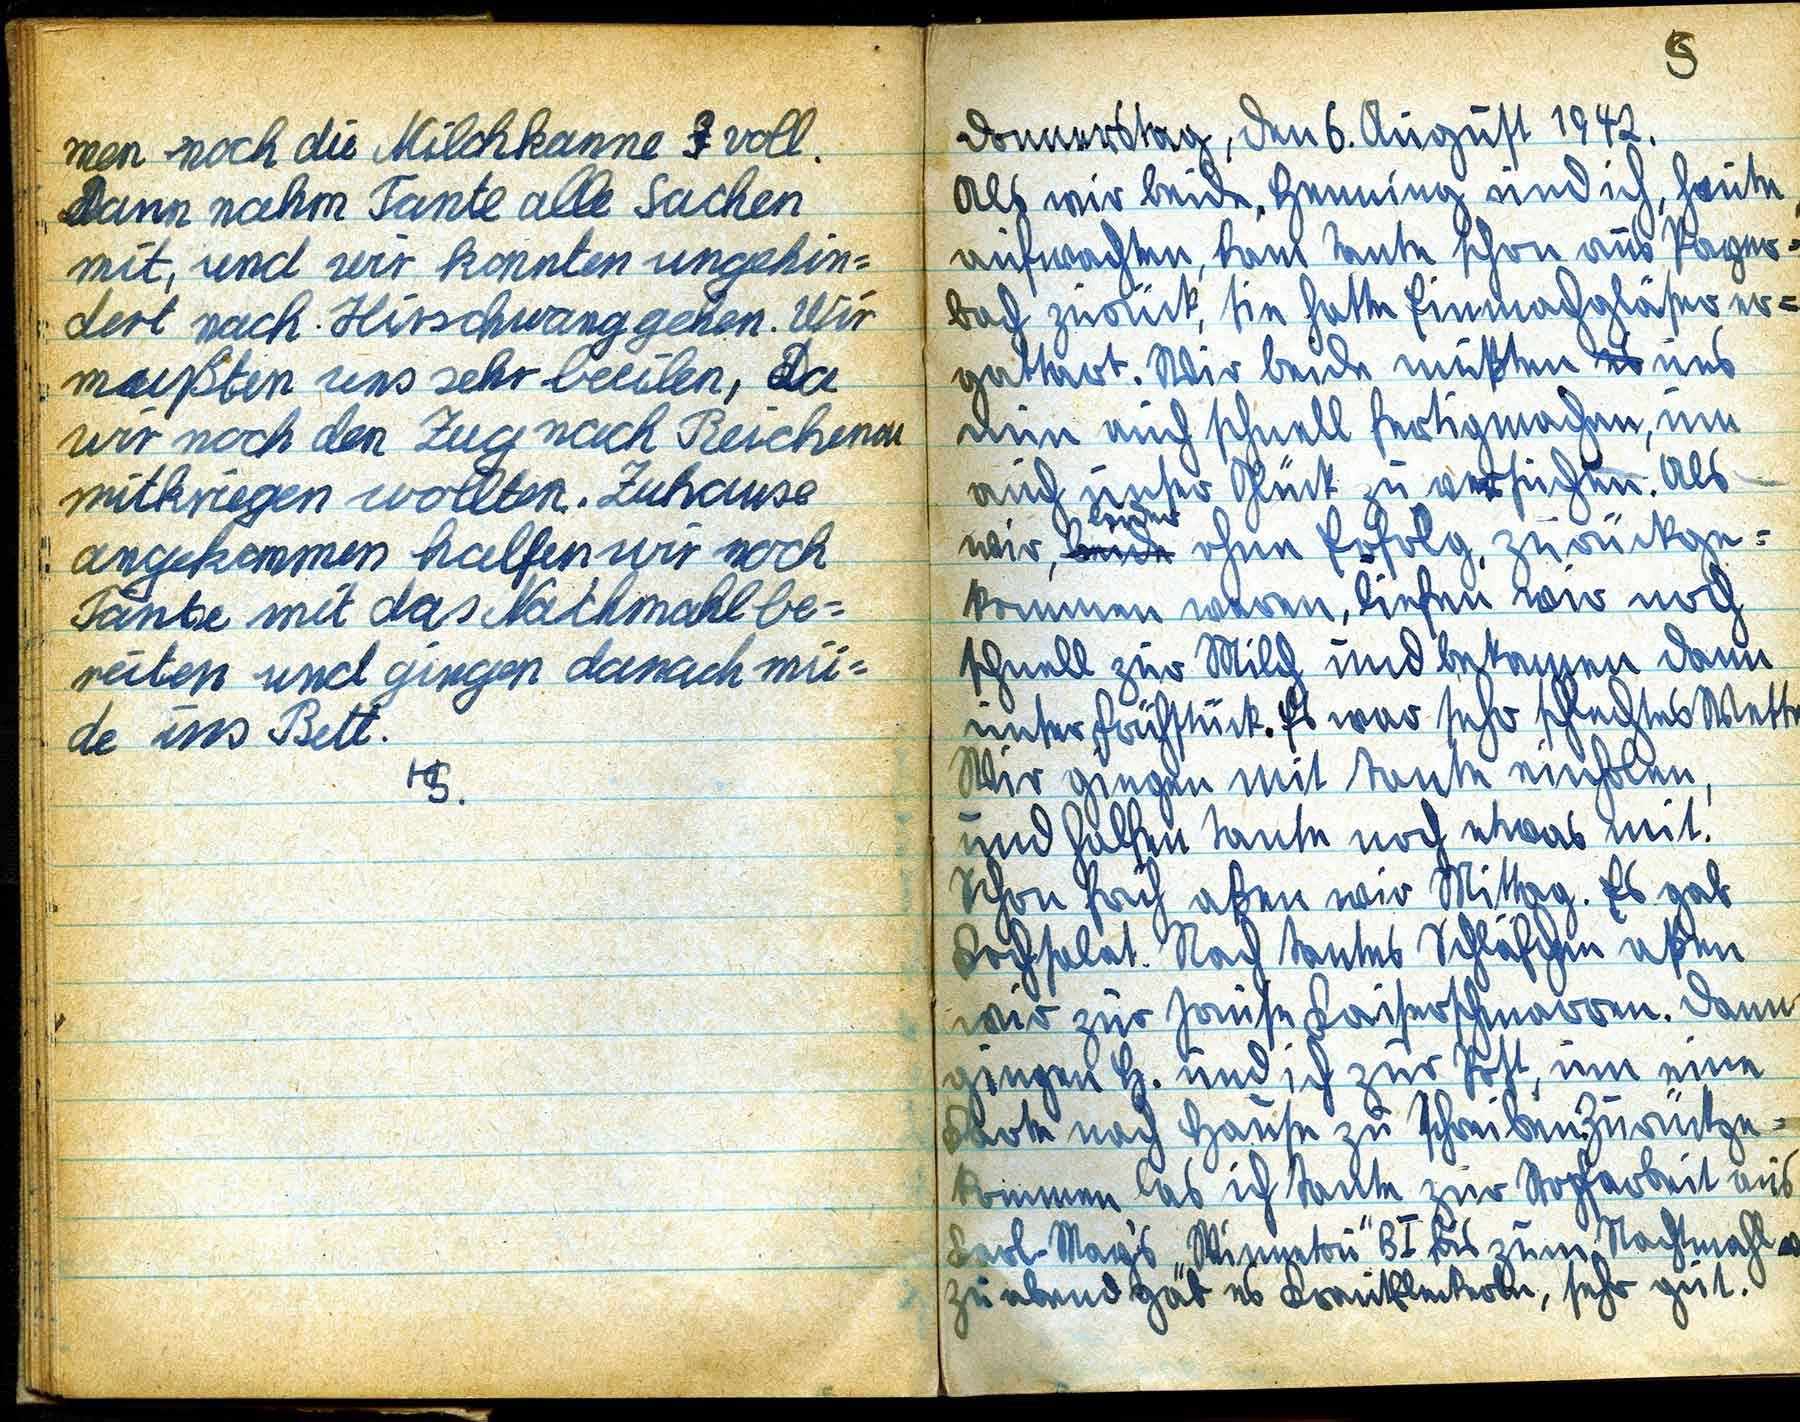 men noch die Milchkanne voll.
Dann nahm Tante alle Sachen
mit, und wir konnten ungehin=
dert nach Hirschwang gehen. Wir
mußten uns sehr beeilen, Da
wir noch den Zug nach Reichenau
mitkriegen wollten. Zuhause
angekommen halfen wir noch
Tante mit das Nachmahl be=
reiten und gingen danach mü=
de ins Bett.
HS.
5
Donnerstag, den 6. August 1942.
Als wir beide, Henning und ich, heute
aufwachten, kam Tante schon aus Payer=
bach zurück, sie hatte Einmachgläser er=
gattert. Wir beide mußten es uns
nun auch schnell fertigmachen, um
auch unser Glück zu versuchen. Als
wir, beide leider ohne Erfolg, zurückge=
kommen waren, liefen wir noch
schnell zur Milch und bekamen dann
unser Frühstück. Es war sehr schlechtes Wette
Wir gingen mit Tante einholen,
und halfen Tante noch etwas mit.
Schon früh aßen wir Mittag. Es gab
Kochsalat. Nach Tantes Schläfchen aßen
wir zur Jause Kaiserschmarren. Dann
gingen H. und ich zur Post, um eine
Karte nach Hause zu schreiben. Zurückge=
kommen las ich Tante zur Stopfarbeit aus
Karl-May's „Winnetou" B I bis zum Nachtmahl
zu abend gab es Krautfleckerln, sehr gut.